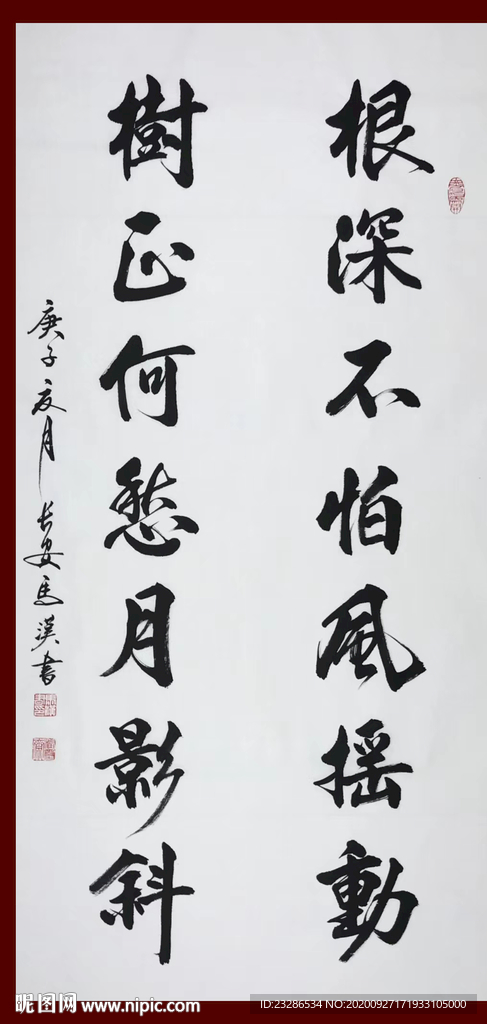 根深不怕風摇動
樹正何愁月影斜
庚子夏月 长安马漢書
昵图网 www.nipic.com
ID:23286534 NO:20200927171933105000